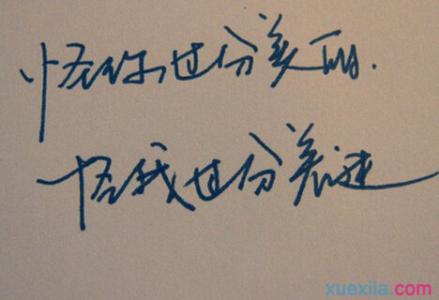 怪你过分美丽.
怪我过分着迷
xuexila.com